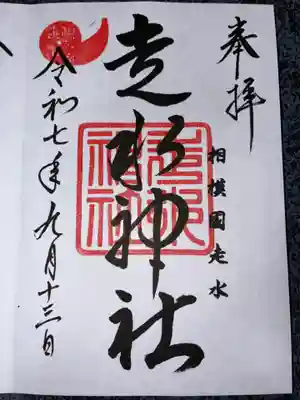 奉拝
相模国走水
走水神社
令和七年九月十三日